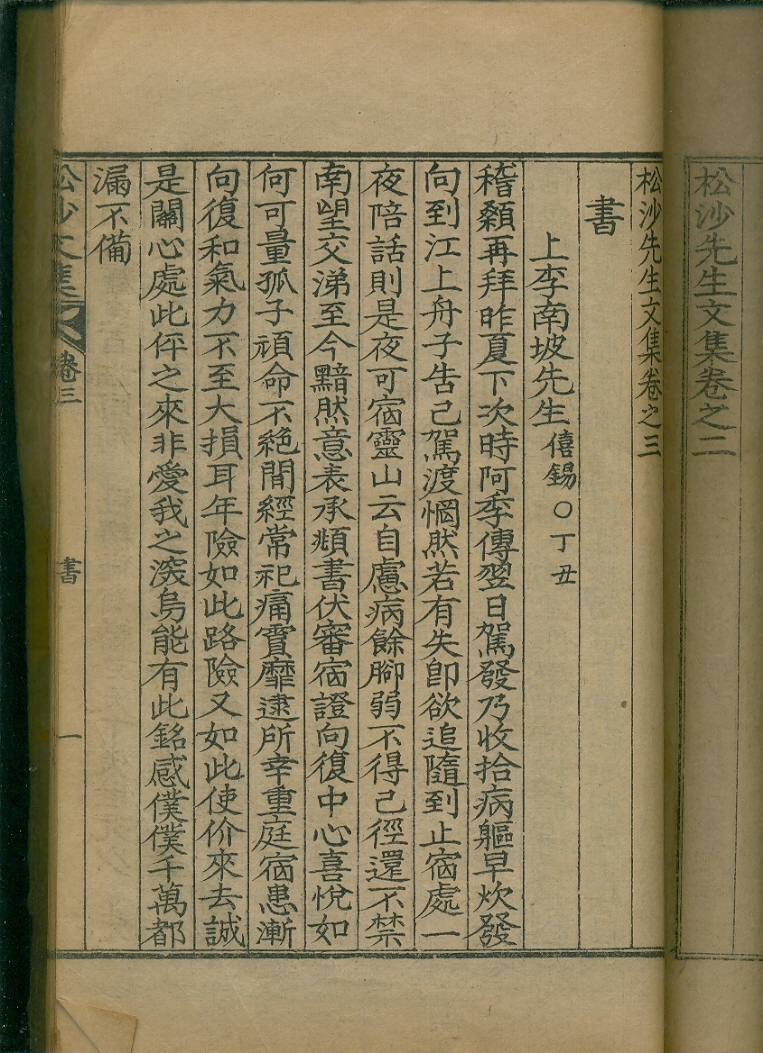 松沙先生文集卷之二
松沙先生文集卷之三
書
上李南坡先生 僖錫 ○丁丑
稽顙再拜昨夏下次時阿季傳翌日駕發乃收拾病軀早炊發
向到江上舟子告已駕渡惘然若有失卽欲追隨到止宿處一
夜陪話則是夜可宿靈山云自慮病餘脚弱不得已徑還不禁
南望交涕至今黯然意表承頫書伏審宿證向復中心喜悅如
何可量孤子頑命不絶閒經常祀痛霣靡逮所幸重庭宿患漸
向復和氣力不至大損耳年險如此路險又如此使价來去誠
是關心處此伻之來非愛我之深烏能有此銘感僕僕千萬都
漏不備
松沙文集 卷三 書 一